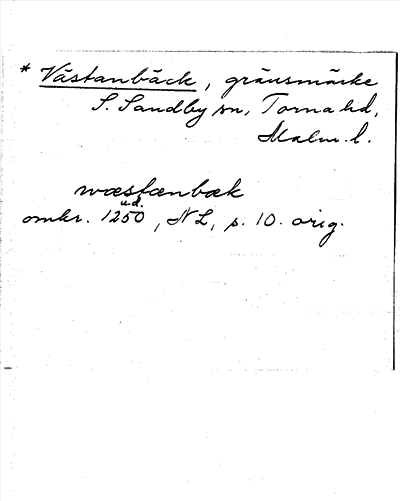 * Västanbäck, gränsmärke
S. Sandby sn, Torna hd,
Malm. l.
wæstænbæk
u.d.
omkr. 1250, NL, p. 10. orig.